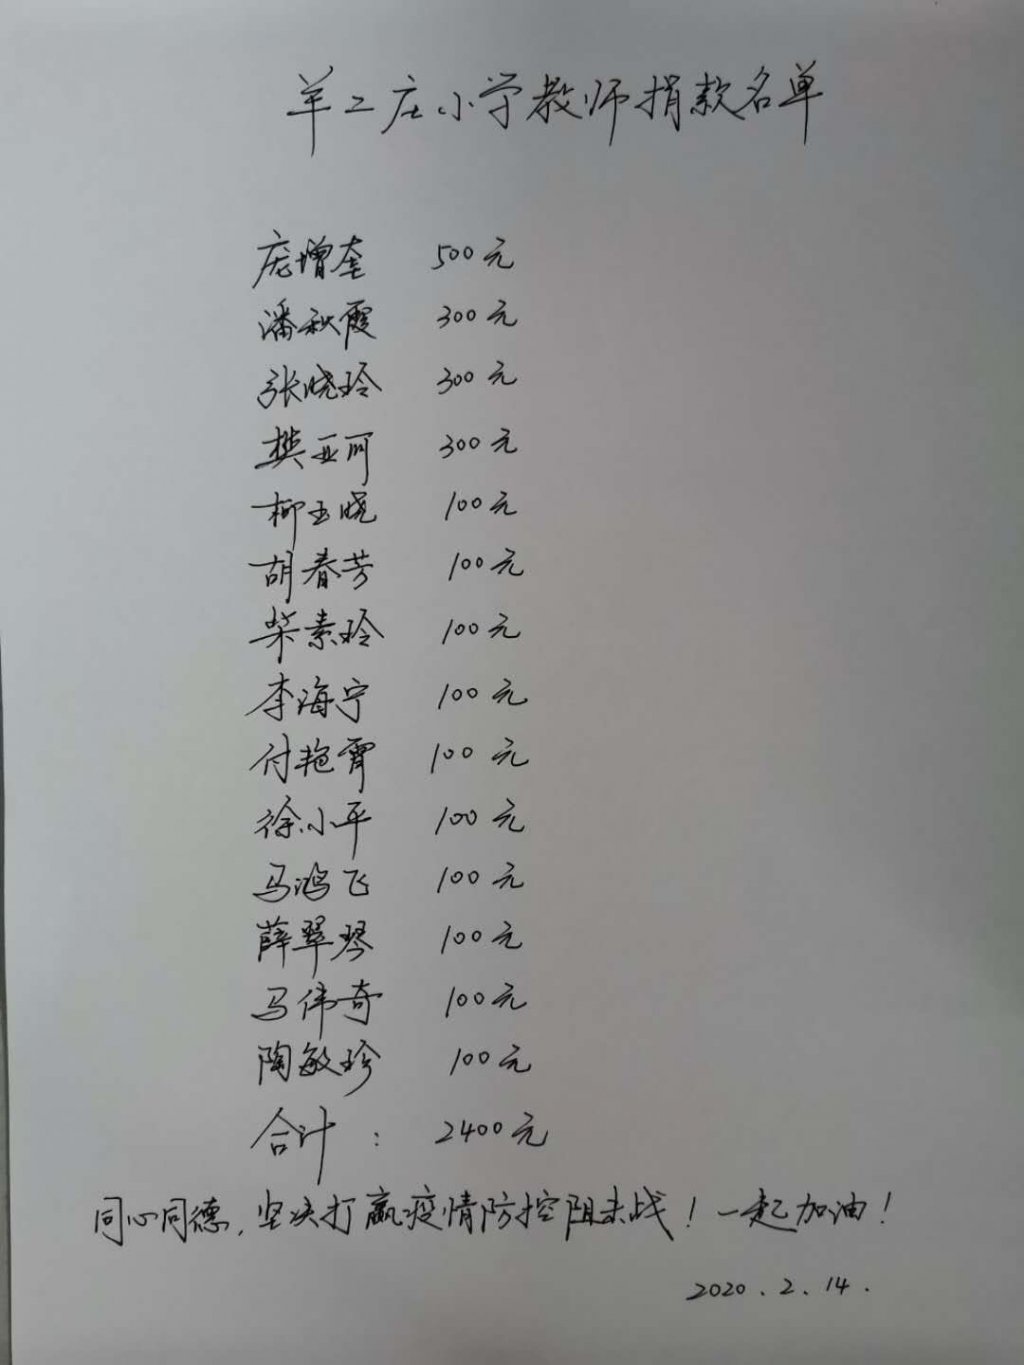 羊二庄小学教师捐款名单
庞增奎 500元
潘秋霞 300元
张晓玲 300元
樊亚可 300元
柳玉晓 100元
胡春芳 100元
柴素玲 100元
李海宁 100元
付艳霄 100元
徐小平 100元
马鸿飞 100元
薛翠琴 100元
马伟奇 100元
陶敏珍 100元
合计: 2400元
同心同德,坚决打赢疫情防控阻击战!一起加油!
2020.2.14.